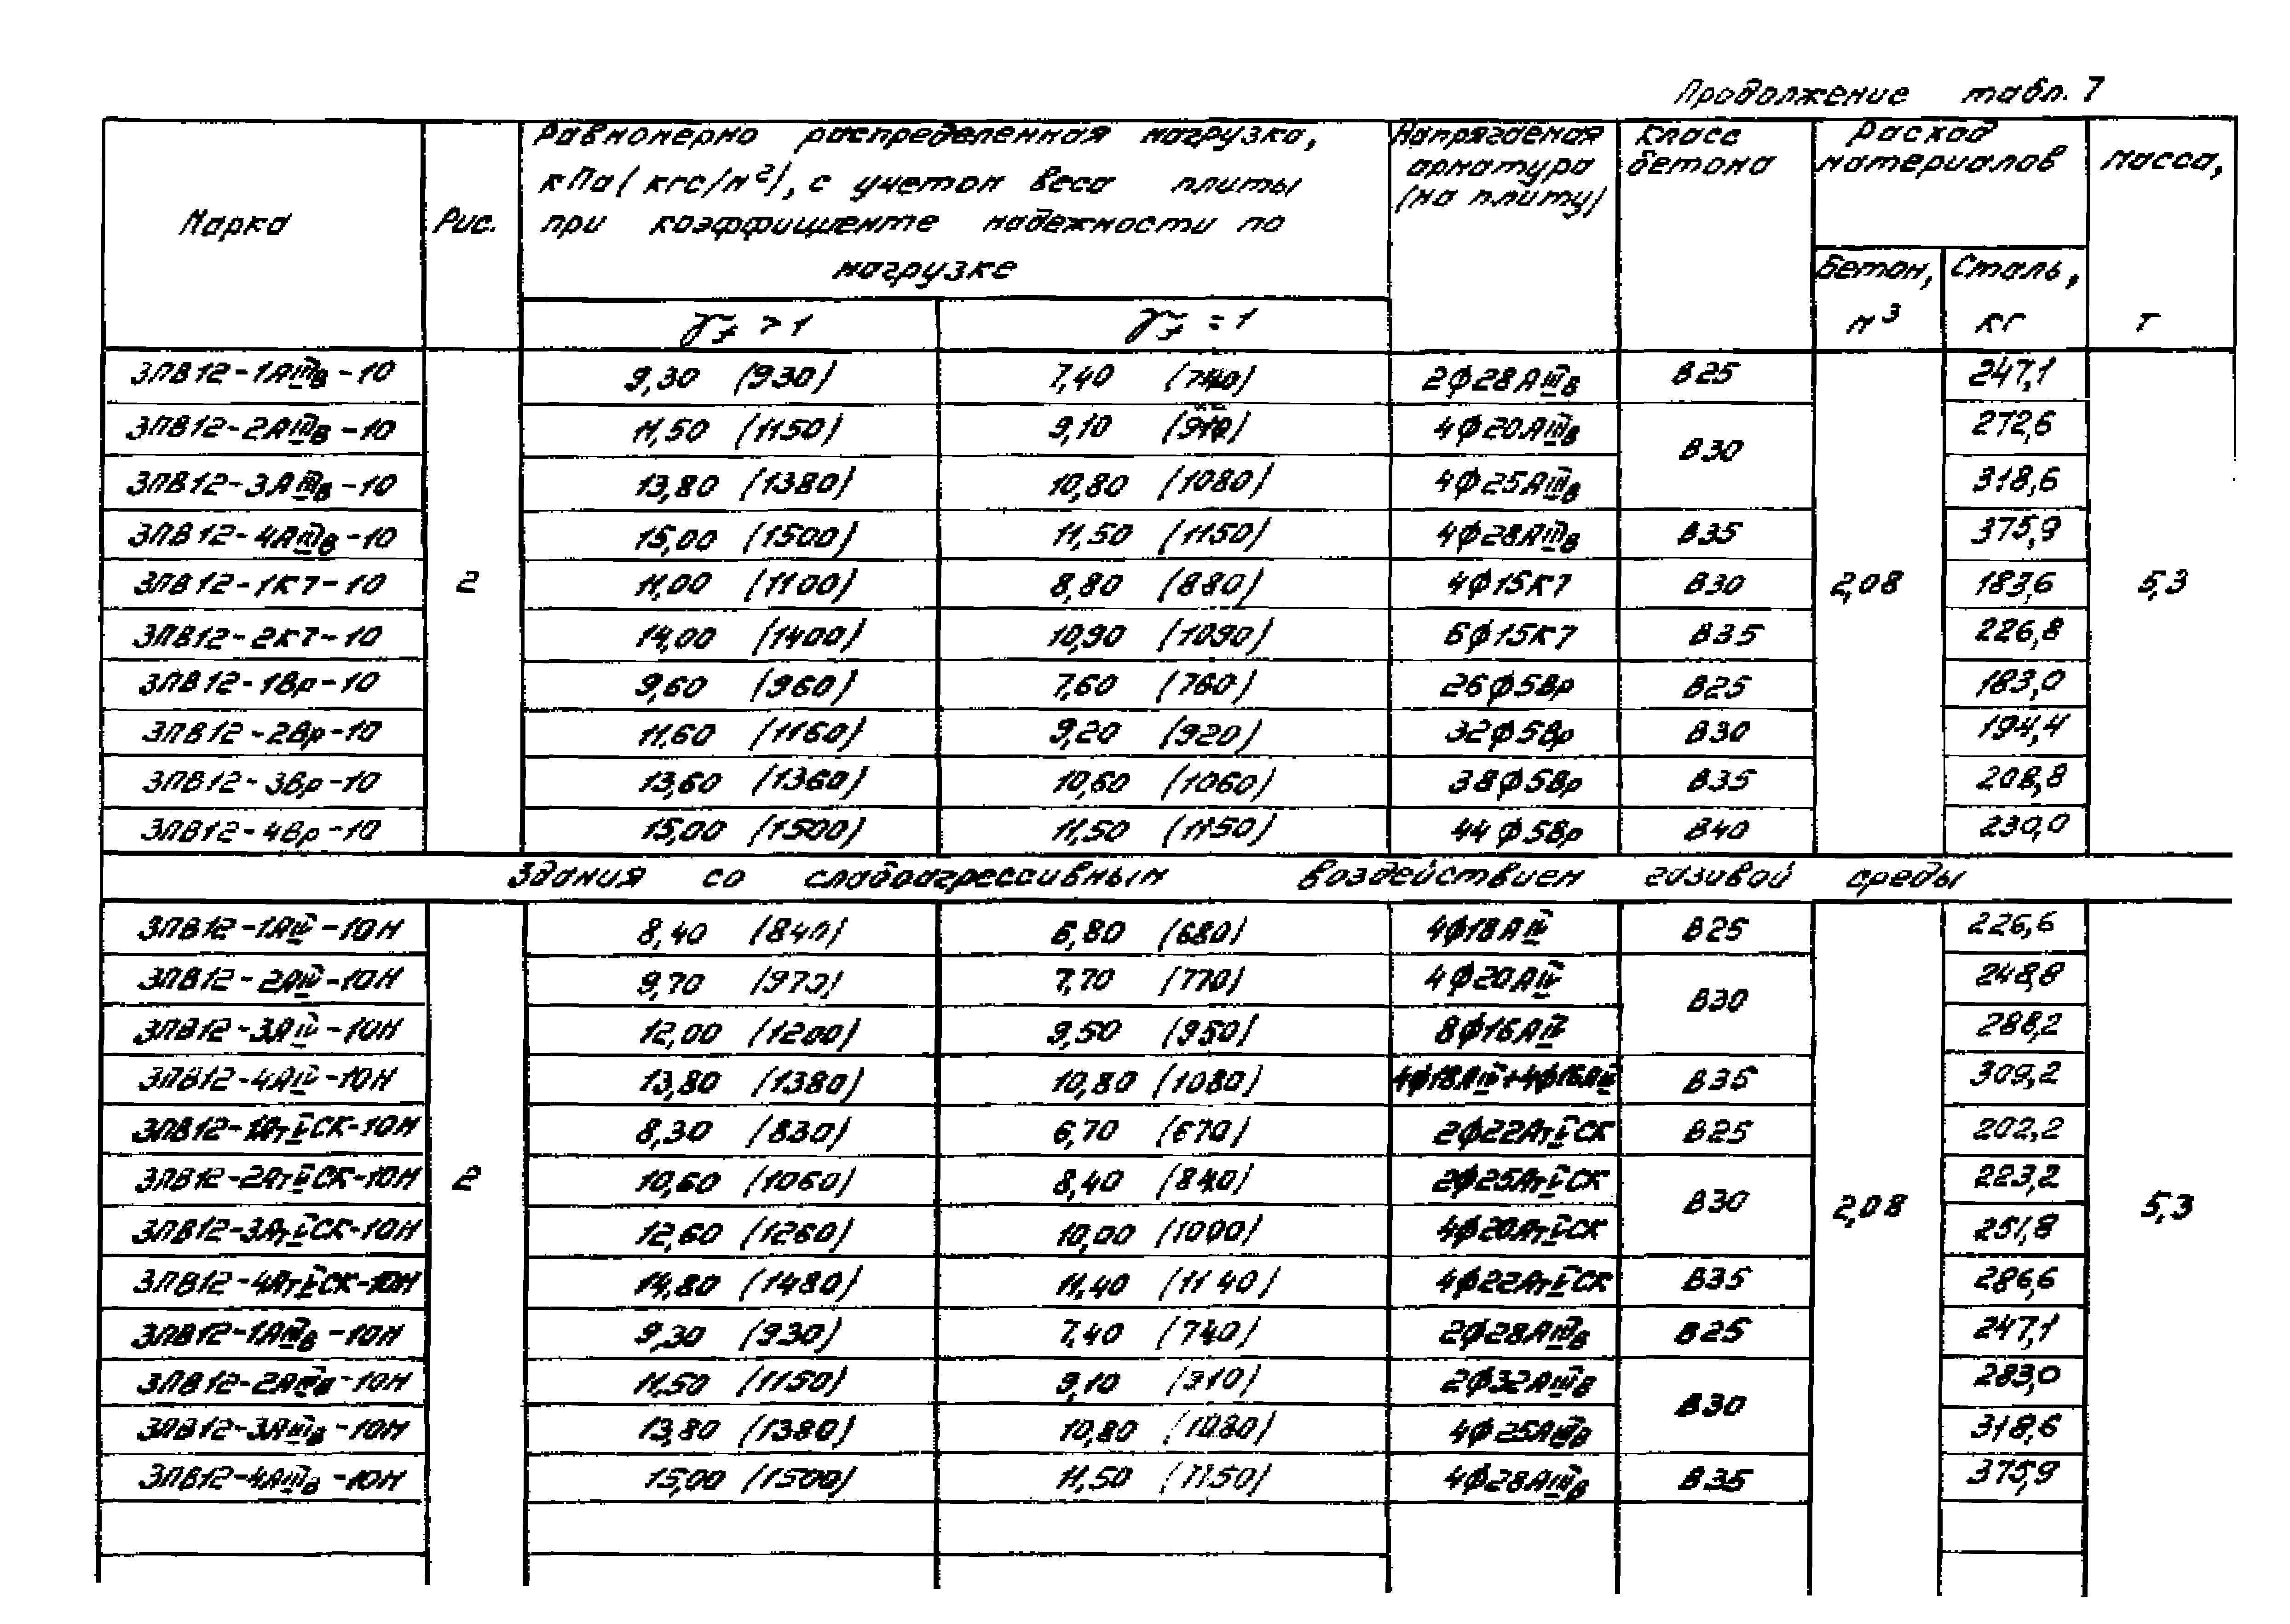 Продолжение табл. 7
Марка Рис. Равномерно распределенная нагрузка, кПа (кгс/м²), с учетом веса плиты при коэффициенте надежности по нагрузке Напрягаемая арматура (на плиту) Класс бетона Расход материалов Масса, т
γf > 1 γf = 1 Бетон, м³ Сталь, кг
3ПВ12-1АIIIв-10 9,30 (930) 7,40 (740) 2ϕ28АIIIв В25 247,1
3ПВ12-2АIIIв-10 11,50 (1150) 9,10 (910) 4ϕ20АIIIв В30 272,6
3ПВ12-3АIIIв-10 13,80 (1380) 10,80 (1080) 4ϕ25АIIIв 318,6
3ПВ12-4АIIIв-10 15,00 (1500) 11,50 (1150) 4ϕ28АIIIв В35 375,9
3ПВ12-1К7-10 2 11,00 (1100) 8,80 (880) 4ϕ15К7 В30 2,08 183,6 5,3
3ПВ12-2К7-10 14,00 (1400) 10,90 (1090) 6ϕ15К7 В35 226,8
3ПВ12-1Вр-10 9,60 (960) 7,60 (760) 26ϕ5Вр В25 183,0
3ПВ12-2Вр-10 11,60 (1160) 9,20 (920) 32ϕ5Вр В30 194,4
3ПВ12-3Вр-10 13,60 (1360) 10,60 (1060) 38ϕ5Вр В35 208,8
3ПВ12-4Вр-10 15,00 (1500) 11,50 (1150) 44ϕ5Вр В40 230,0
Здания со слабоагрессивным воздействием газовой среды
3ПВ12-1АIV-10Н 8,40 (840) 6,80 (680) 4ϕ18АIV В25 226,6
3ПВ12-2АIV-10Н 9,70 (970) 7,70 (770) 4ϕ20АIV В30 248,8
3ПВ12-3АIV-10Н 12,00 (1200) 9,50 (950) 8ϕ16АIV 288,2
3ПВ12-4АIV-10Н 13,80 (1380) 10,80 (1080) 4ϕ18АIV+4ϕ16АIV В35 309,2
3ПВ12-1АтVСК-10Н 8,30 (830) 6,70 (670) 2ϕ22АтVСК В25 202,2
3ПВ12-2АтVСК-10Н 2 10,60 (1060) 8,40 (840) 2ϕ25АтVСК В30 2,08 223,2 5,3
3ПВ12-3АтVСК-10Н 12,60 (1260) 10,00 (1000) 4ϕ20АтVСК 251,8
3ПВ12-4АтVСК-10Н 14,80 (1480) 11,40 (1140) 4ϕ22АтVСК В35 286,6
3ПВ12-1АIIIв-10Н 9,30 (930) 7,40 (740) 2ϕ28АIIIв В25 247,1
3ПВ12-2АIIIв-10Н 11,50 (1150) 9,10 (910) 2ϕ32АIIIв В30 283,0
3ПВ12-3АIIIв-10Н 13,80 (1380) 10,80 (1080) 4ϕ25АIIIв 318,6
3ПВ12-4АIIIв-10Н 15,00 (1500) 11,50 (1150) 4ϕ28АIIIв В35 375,9